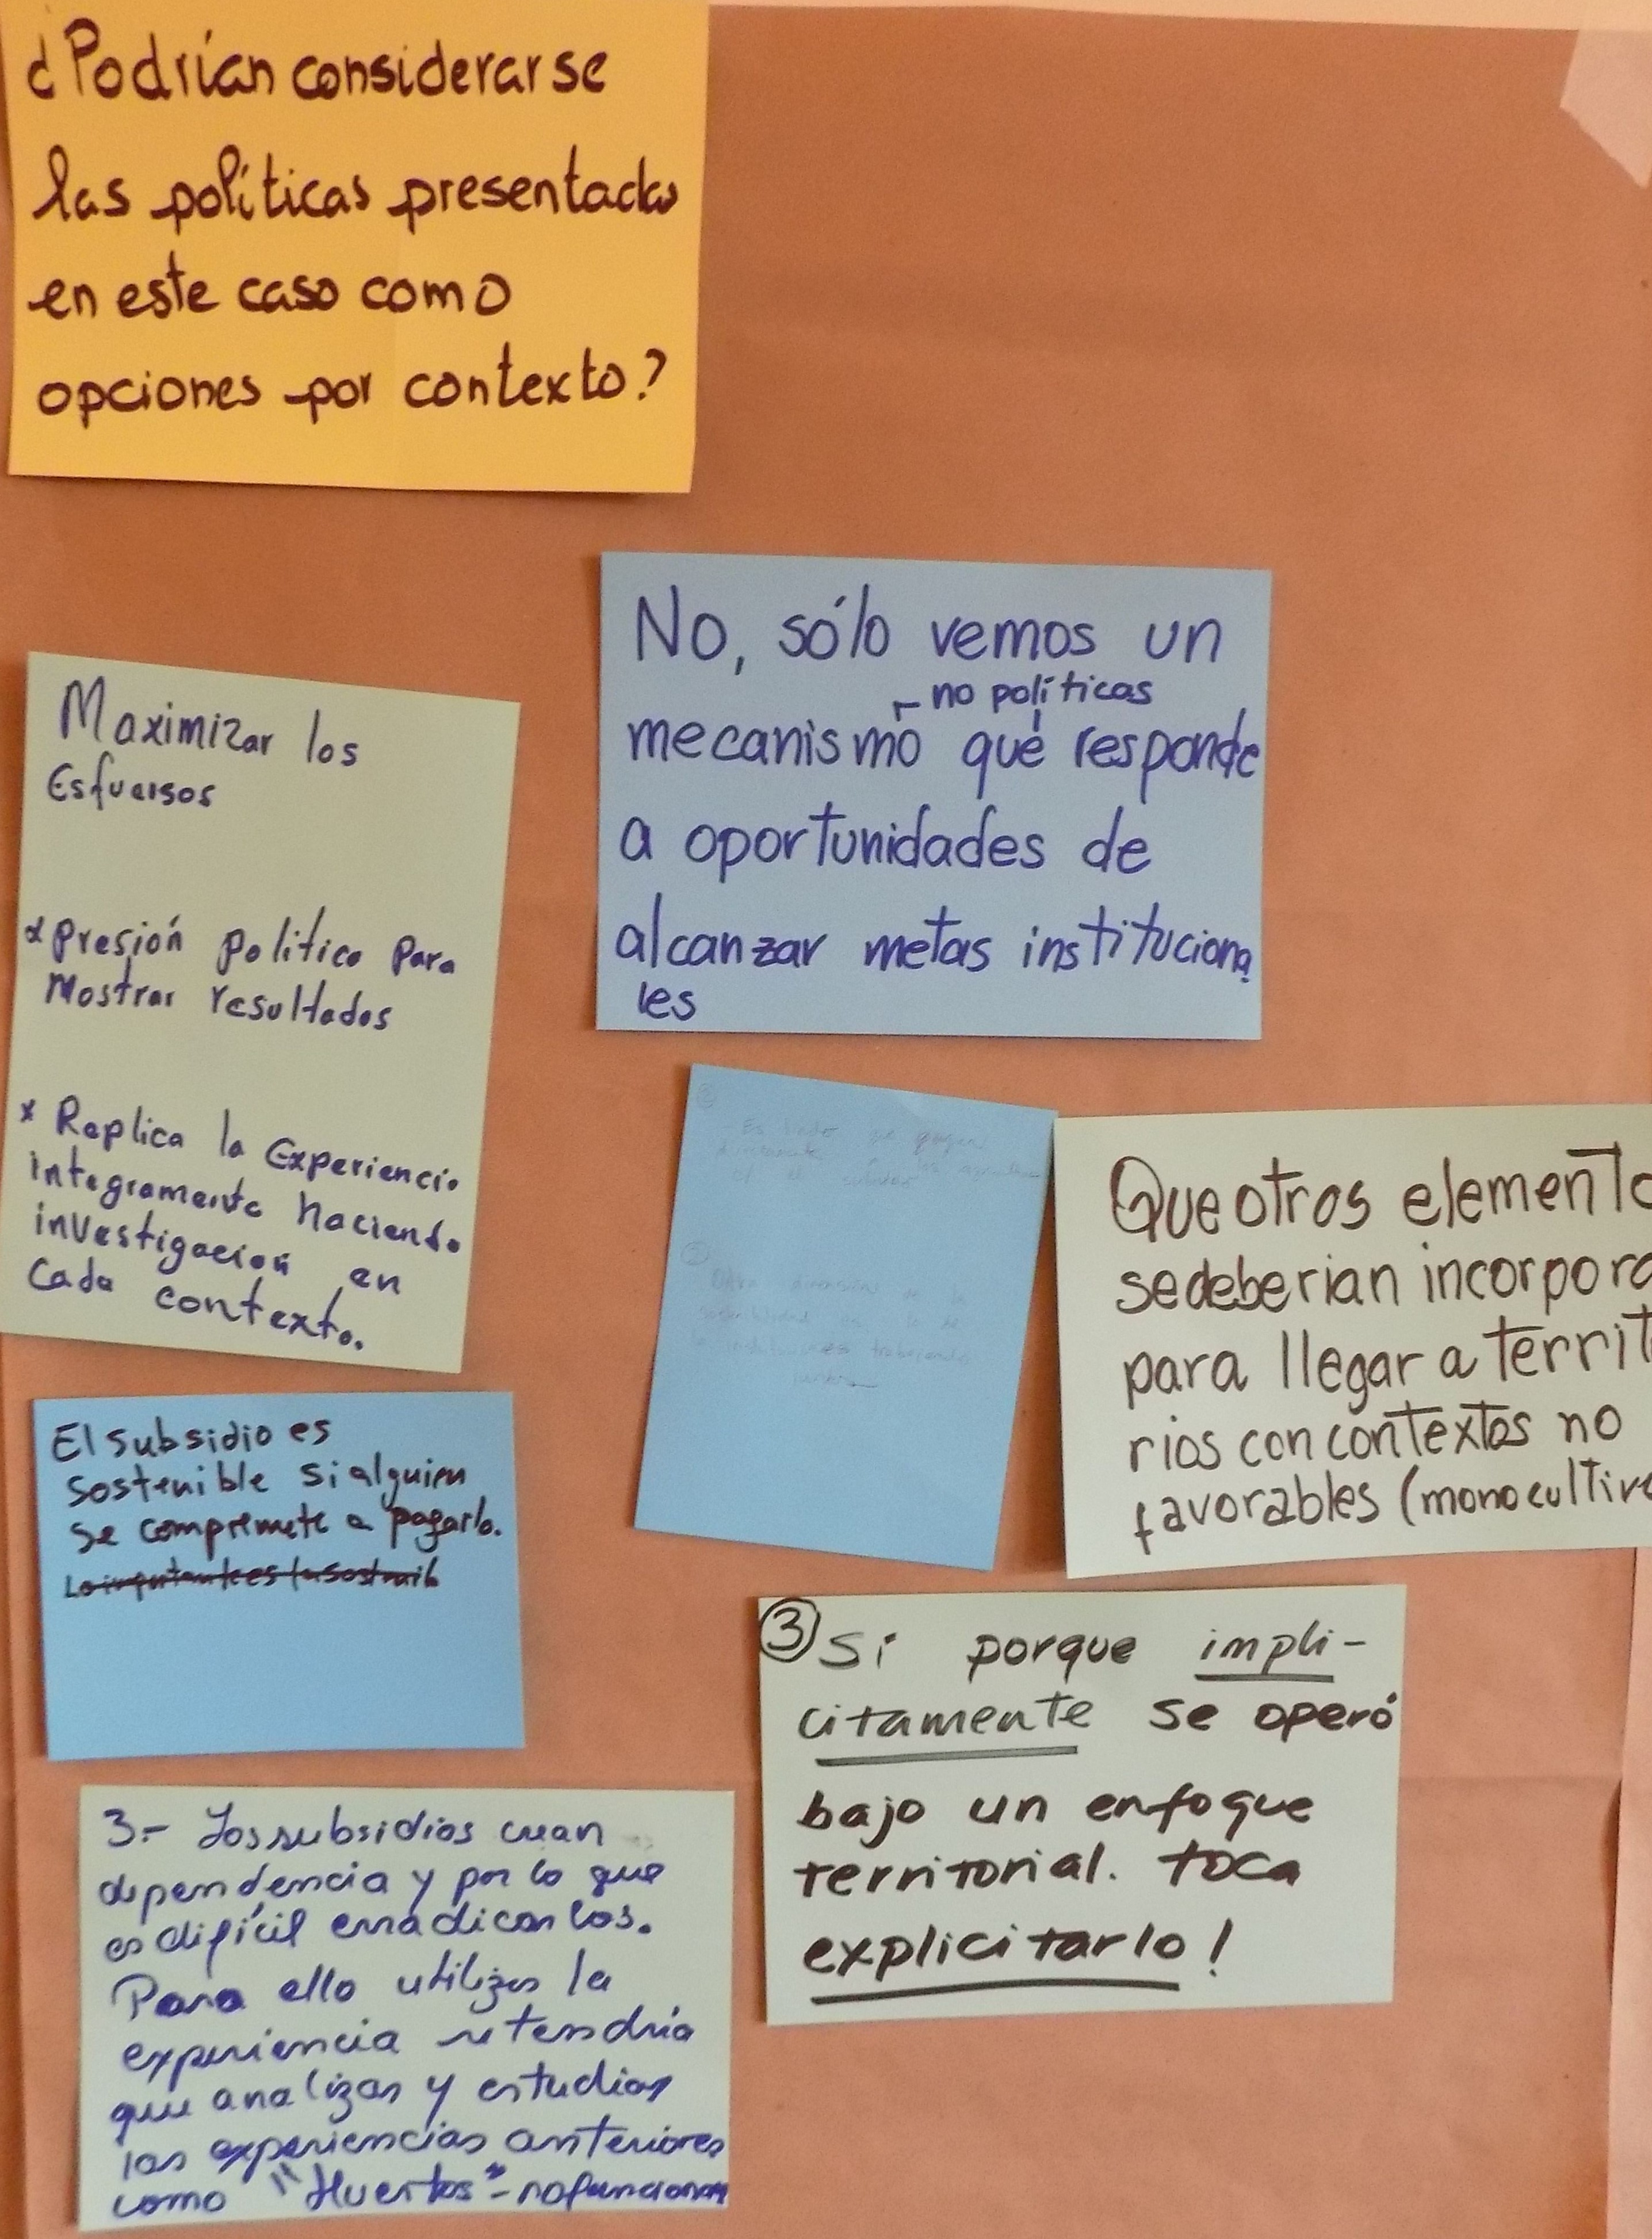 ¿Podrían considerarse
las políticas presentadas
en este caso como
opciones por contexto?
No, sólo vemos un
no políticas
mecanismo que responde
a oportunidades de
alcanzar metas instituciona
les
Maximizar los
Esfuersos
* Presión politica Para
Mostrar resultados
* Replica la Experiencia
integramente haciendo
investigacion en
Cada contexto.
Que otros elemento
se deberian incorpora
para llegar a territ
rios con contextos no
favorables (monocultivo
El subsidio es
sostenible si alguien
se compromete a pagarlo.
③ Si porque impli-
citamente se operó
bajo un enfoque
territorial. toca
explicitarlo!
3.- Los subsidios crean
dependencia y por lo que
es difícil erradicarlos.
Para ello utilizar la
experiencia se tendría
que analizar y estudiar
las experiencias anteriores
como "Huertos" - no funcionan